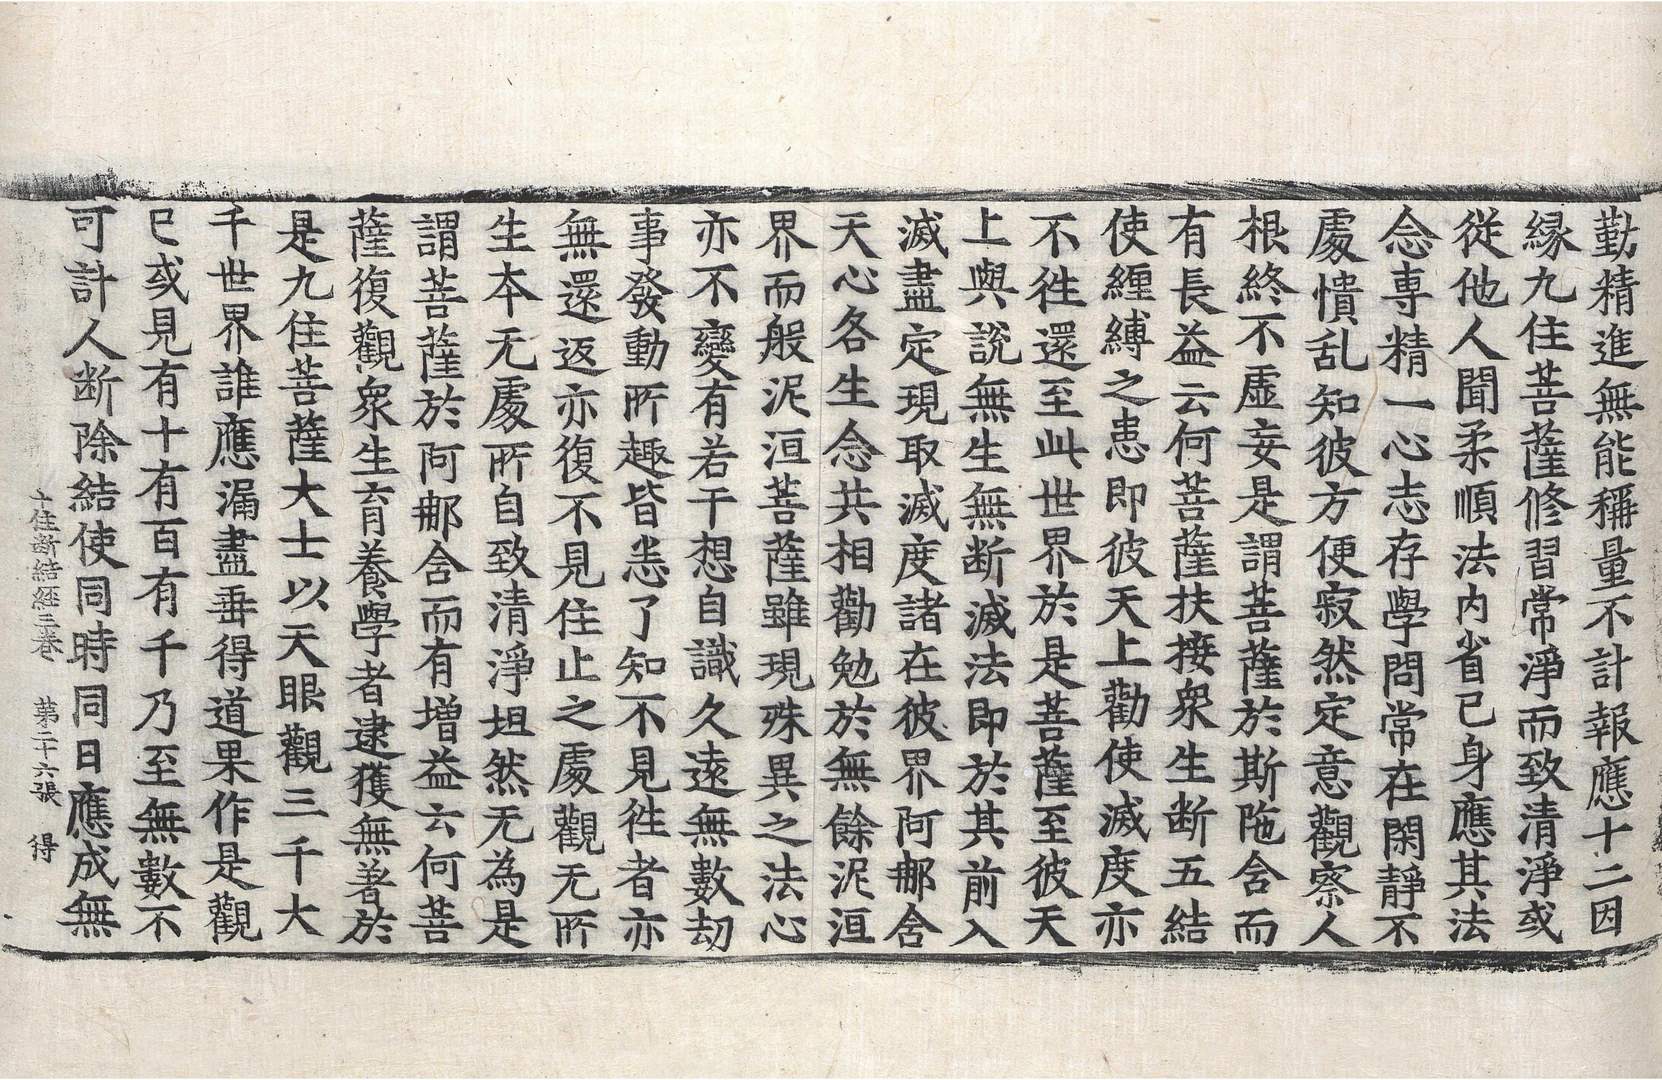 勤精進無能稱量不計報應十二因
縁九住菩薩修習常淨而致清淨或
從他人聞柔順法内省已身應其法
念專精一心志存學問常在閑靜不
處憒乱知彼方便寂然定意觀察人
根終不虛妄是謂菩薩於斯陁含而
有長益云何菩薩扶接衆生断五結
使纏縛之患即彼天上勸使滅度亦
不徃還至此世界於是菩薩至彼天
上與說無生無断滅法即於其前入
滅盡定現取滅度諸在彼界阿郍含
天心各生念共相勸勉於無餘泥洹
界而般泥洹菩薩雖現殊異之法心
亦不變有若干想自識久遠無數劫
事發動所趣皆悉了知不見徃者亦
無還返亦復不見住止之處觀无所
生本无處所自致清淨坦然无為是
謂菩薩於阿郍含而有增益云何菩
薩復觀衆生育養學者逮獲無著於
是九住菩薩大士以天眼觀三千大
千世界誰應漏盡垂得道果作是觀
已或見有十有百有千乃至無數不
可計人断除結使同時同日應成無
十住断結經三卷 第二十六張 得